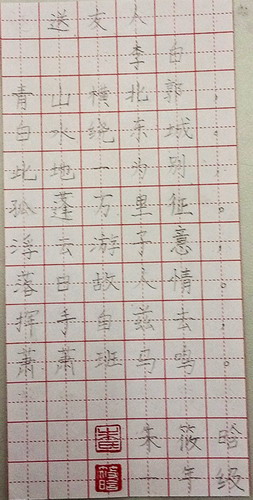 送友人
李白
青山横北郭，
白水绕东城。
此地一为别，
孤蓬万里征。
浮云游子意，
落日故人情。
挥手自兹去，
萧萧班马鸣。
朱筱晗
一年级